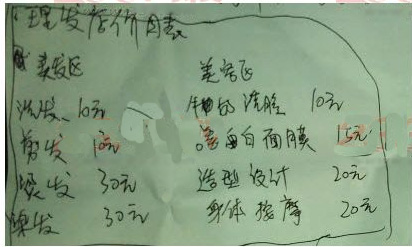 理发店价目表
美发区 美容区
洗发 10元 洗脸 10元
剪发 10元 蛋白面膜 15元
烫发 30元 造型设计 20元
染发 30元 身体按摩 20元